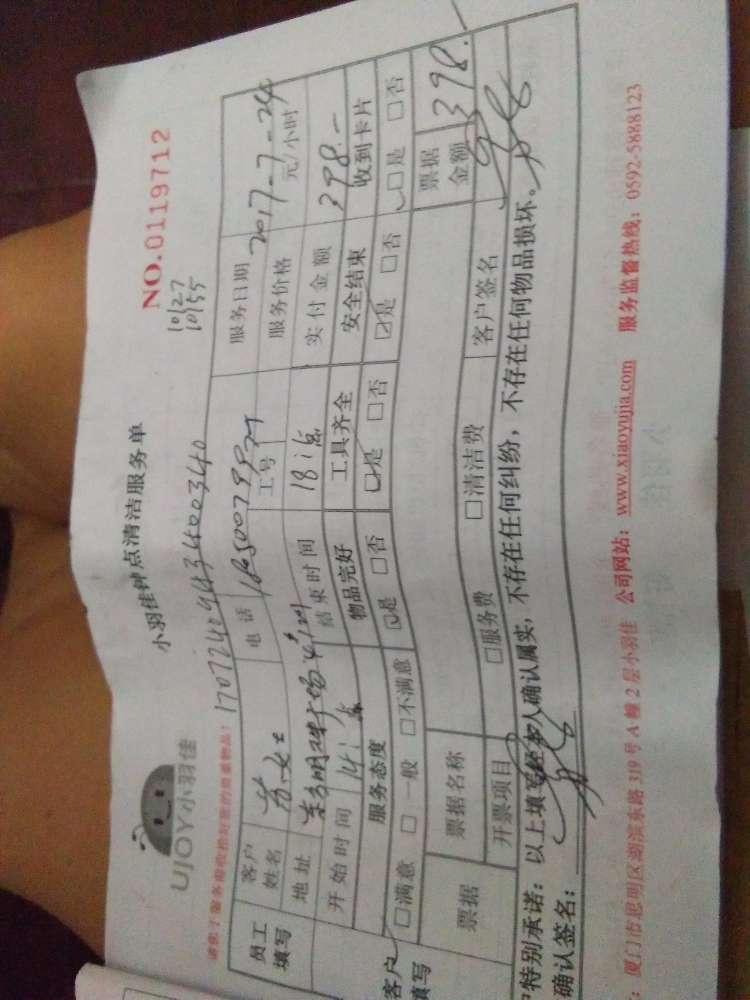 UJOY小羽佳
小羽佳钟点清洁服务单
NO.0119712
10127
10155
员工填写
客户姓名
电话
服务日期 2017-7-24
地址
工号
服务价格 元/小时
开始时间 14:
结束时间 18:点
实付金额 398.-
服务态度 物品完好 工具齐全 安全结束 收到卡片
□满意 □一般 □不满意 □是 □否 □是 □否 □是 □否 □是 □否
客户填写
票据 票据名称 票据金额 398.-
开票项目 □服务费 □清洁费 客户签名
户特别承诺：以上填写经本人确认属实，不存在任何纠纷，不存在任何物品损坏。
确认签名：
：厦门市思明区湖滨东路319号A幢2层小羽佳 公司网站：www.xiaoyujia.com 服务监督热线：0592-5888123